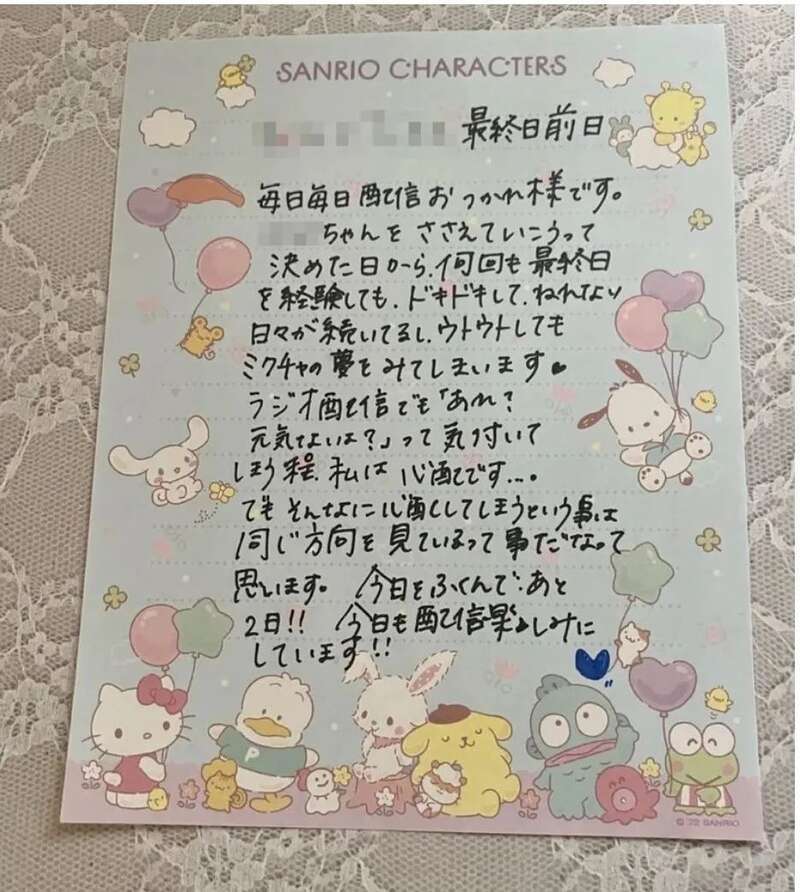 SANRIO CHARACTERS
最終日前日
毎日毎日配信おつかれ様です。
ちゃんをささえていこうって
決めた日から、何回も最終日
を経験しても、ドキドキして、ねれてない
日々が続いてるし、ウトウトしても
ミクチャの夢をみてしまいます♥
ラジオ配信でも「あれ?
元気ないな?」って気付いて
しまう程、私は心配です…。
でもそんなに心配してしまうという事は
同じ方向を見ているって事だなって
思います。 今日をふくんで、あと
2日!! 今日も配信楽しみに
しています!!
P
© '22 SANRIO